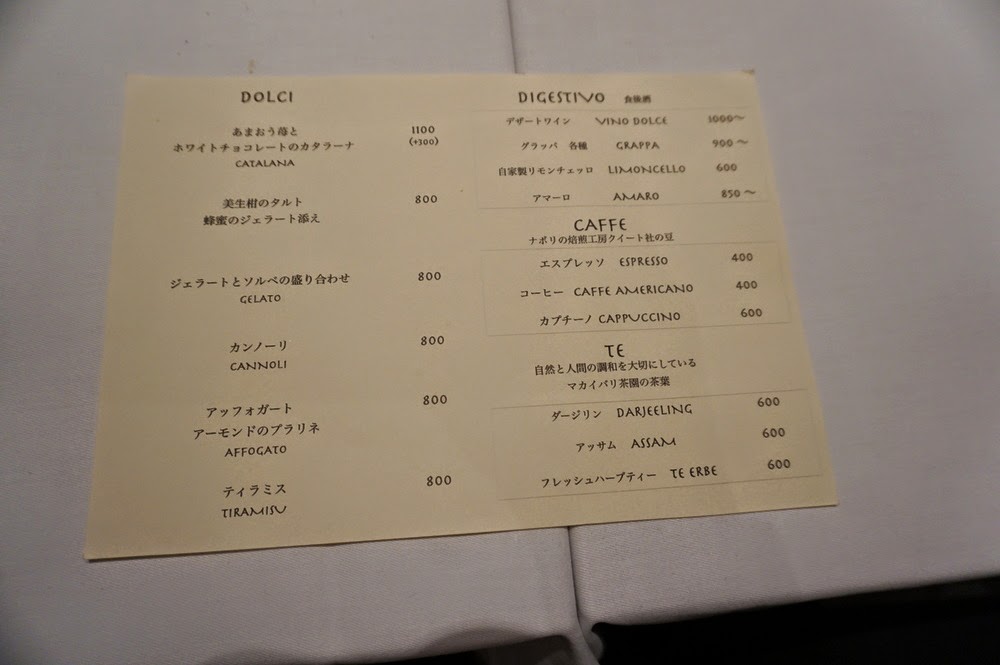 DOLCI
あまおう苺と 1100
ホワイトチョコレートのカタラーナ (+300)
CATALANA
美生柑のタルト 800
蜂蜜のジェラート添え
ジェラートとソルベの盛り合わせ 800
GELATO
カンノーリ 800
CANNOLI
アッフォガート 800
アーモンドのプラリネ
AFFOGATO
ティラミス 800
TIRAMISU
DIGESTIVO 食後酒
デザートワイン VINO DOLCE 1000～
グラッパ 各種 GRAPPA 900～
自家製リモンチェッロ LIMONCELLO 600
アマーロ AMARO 850～
CAFFE
ナポリの焙煎工房クイート社の豆
エスプレッソ ESPRESSO 400
コーヒー CAFFE AMERICANO 400
カプチーノ CAPPUCCINO 600
TE
自然と人間の調和を大切にしている
マカイバリ茶園の茶葉
ダージリン DARJEELING 600
アッサム ASSAM 600
フレッシュハーブティー TE ERBE 600